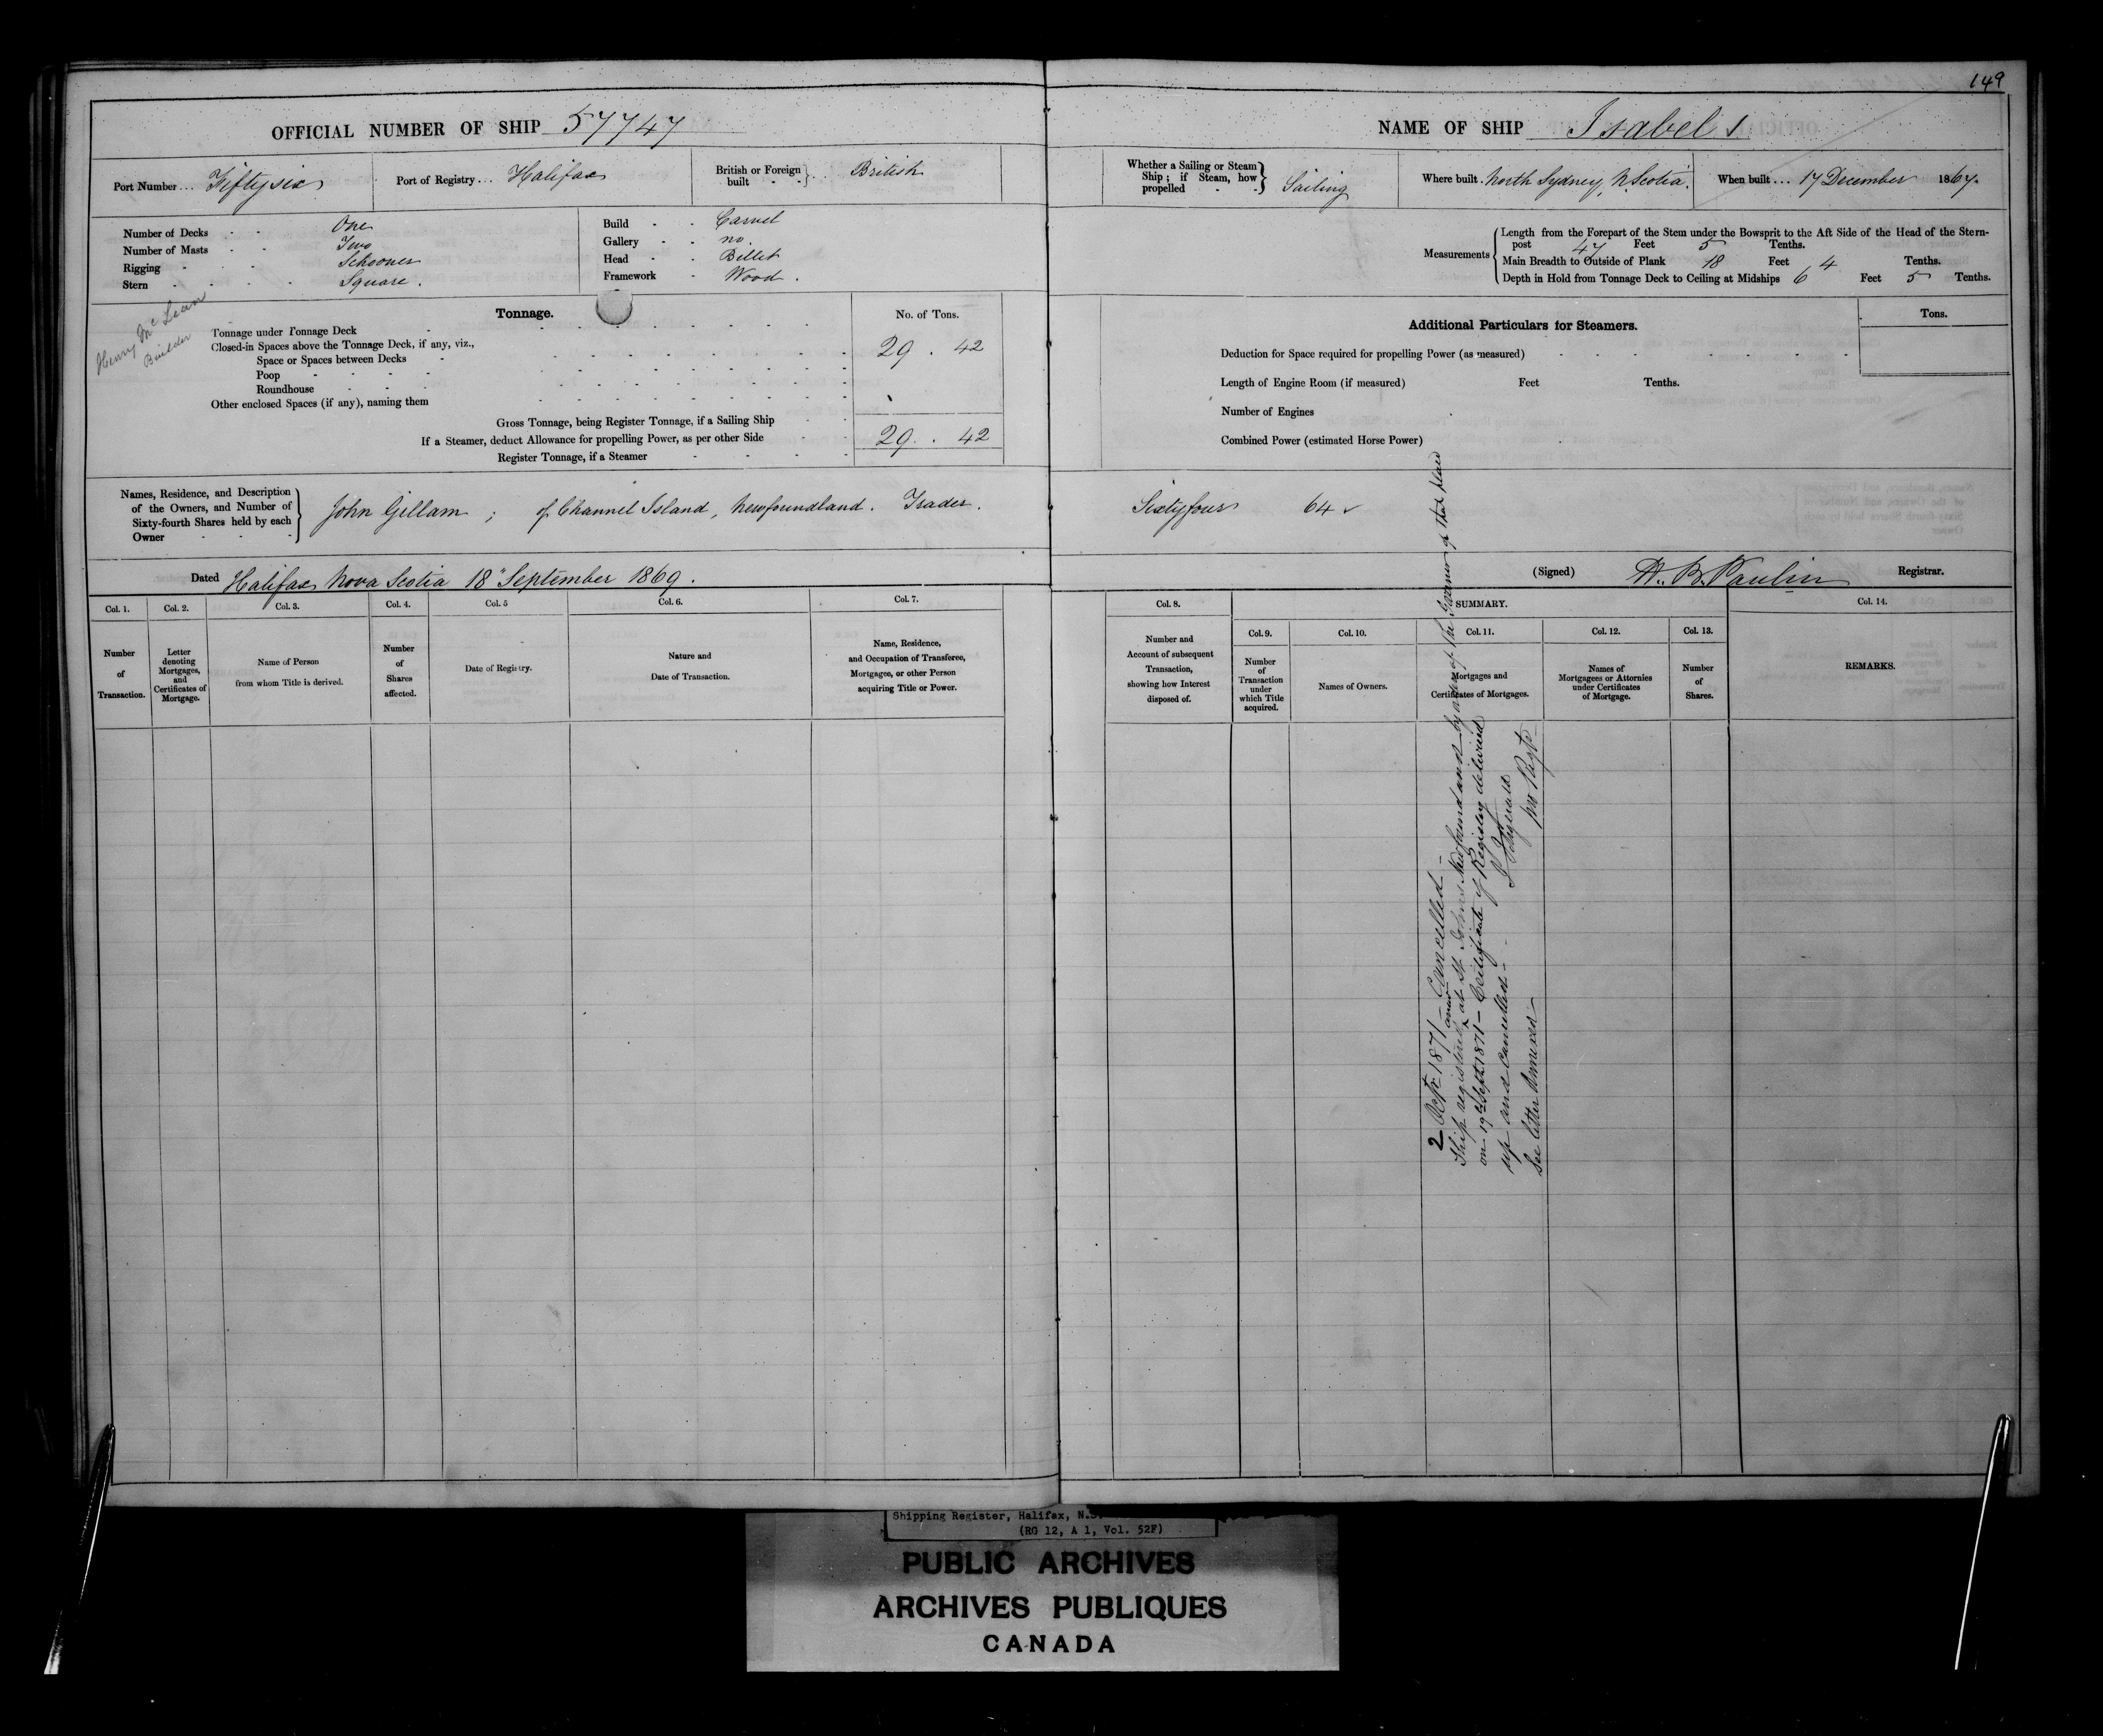 149
OFFICIAL NUMBER OF SHIP 57747
NAME OF SHIP Isabel
Port Number... Fiftysix
Port of Registry... Halifax
British or Foreign built } British
Whether a Sailing or Steam Ship; if Steam, how propelled } Sailing
Where built. North Sydney, N. Scotia.
When built... 17 December 1867.
Number of Decks - - One
Number of Masts - - Two
Rigging - - - Schooner
Stern - - - - Square.
Build - - Carvel
Gallery - - no.
Head - - Billet
Framework - Wood.
Measurements
Length from the Forepart of the Stem under the Bowsprit to the Aft Side of the Head of the Stern-
post 47 Feet 5 Tenths.
Main Breadth to Outside of Plank 18 Feet 4 Tenths.
Depth in Hold from Tonnage Deck to Ceiling at Midships 6 Feet 5 Tenths.
Henry McLean
Builder
Tonnage.
No. of Tons.
Tonnage under Tonnage Deck
Closed-in Spaces above the Tonnage Deck, if any, viz.,
Space or Spaces between Decks
29 . 42
Poop
Roundhouse
Other enclosed Spaces (if any), naming them
Gross Tonnage, being Register Tonnage, if a Sailing Ship
If a Steamer, deduct Allowance for propelling Power, as per other Side
29 . 42
Register Tonnage, if a Steamer
Additional Particulars for Steamers.
Tons.
Deduction for Space required for propelling Power (as measured)
Length of Engine Room (if measured) Feet Tenths.
Number of Engines
Combined Power (estimated Horse Power)
Names, Residence, and Description
of the Owners, and Number of
Sixty-fourth Shares held by each
Owner
John Gillam; of Channel Island, Newfoundland. Trader.
Sixtyfour 64
Dated Halifax Nova Scotia 18" September 1869.
(Signed) Paulin Registrar.
Col. 1. Col. 2. Col. 3. Col. 4. Col. 5 Col. 6. Col. 7.
Number of Transaction.
Letter denoting Mortgages, and Certificates of Mortgage.
Name of Person from whom Title is derived.
Number of Shares affected.
Date of Registry.
Nature and Date of Transaction.
Name, Residence, and Occupation of Transferee, Mortgagee, or other Person acquiring Title or Power.
Col. 8.
Number and Account of subsequent Transaction, showing how Interest disposed of.
SUMMARY.
Col. 9. Col. 10. Col. 11. Col. 12. Col. 13.
Number of Transaction under which Title acquired.
Names of Owners.
Mortgages and Certificates of Mortgages.
Names of Mortgagees or Attornies under Certificates of Mortgage.
Number of Shares.
Col. 14.
REMARKS.
2 Oct. 1871 - Cancelled -
Ship registered anew at St. Johns Newfoundland - by order of the Governor of that place
on 19th Sept 1871 - Certificate of Registry delivered
up and cancelled -
See letter Annexed -
Shipping Register, Halifax, N.S.
(RG 12, A 1, Vol. 52F)
PUBLIC ARCHIVES
ARCHIVES PUBLIQUES
CANADA